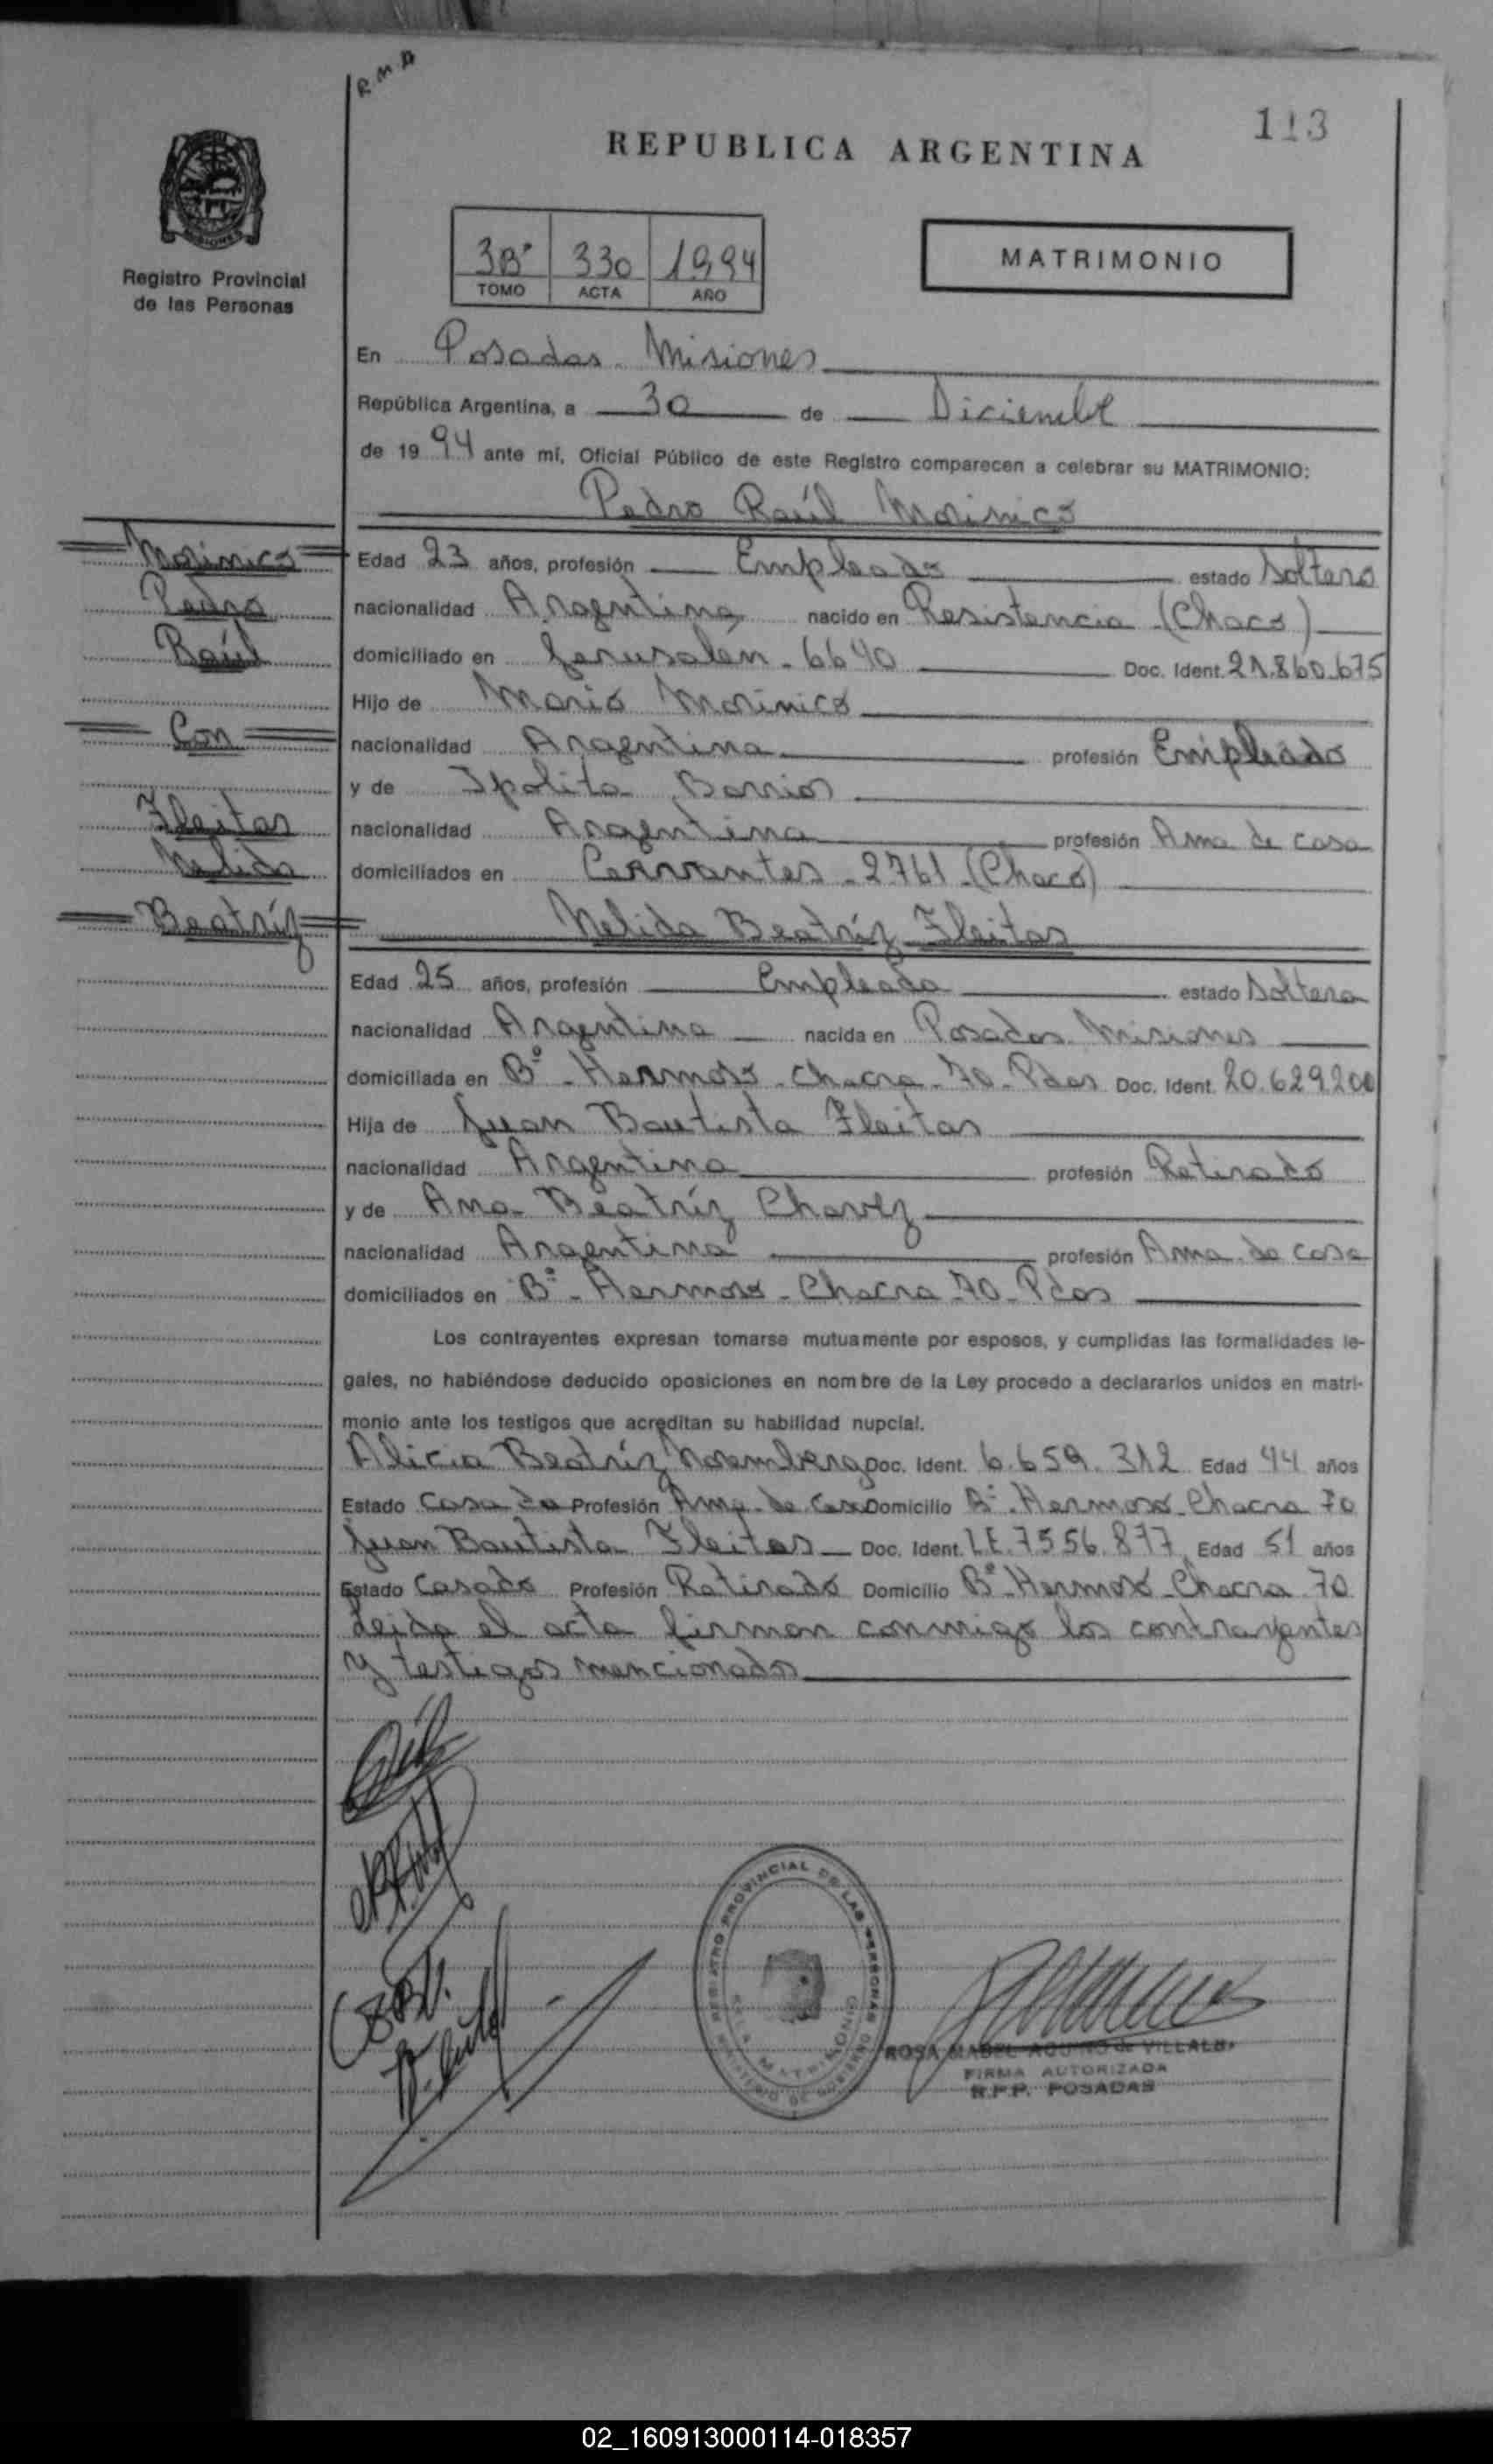 R.M.A
113
REPUBLICA ARGENTINA
MISIONES
Registro Provincial
de las Personas
3Bº 330 1994
TOMO ACTA AÑO
MATRIMONIO
En Posadas Misiones
República Argentina, a 30 de Diciembre
de 1994 ante mí, Oficial Público de este Registro comparecen a celebrar su MATRIMONIO:
Pedro Raúl Morinico
Morinico
Pedro
Raúl
Con
Fleitas
Nelida
Beatríz
Edad 23 años, profesión Empleado estado Soltero
nacionalidad Argentina nacido en Resistencia (Chaco)
domiciliado en Jerusalén - 6640 Doc. Ident. 21.860.675
Hijo de Mario Morinico
nacionalidad Argentina profesión Empleado
y de Ipolita Barrios
nacionalidad Argentina profesión Ama de casa
domiciliados en Cervantes - 2761 (Chaco)
Nelida Beatríz Fleitas
Edad 25 años, profesión Empleada estado Soltera
nacionalidad Argentina nacida en Posadas Misiones
domiciliada en Bº - Hermoso - Chacra - 70 - Pdas Doc. Ident. 20.629.200
Hija de Juan Bautista Fleitas
nacionalidad Argentina profesión Retirado
y de Ana Beatríz Chavez
nacionalidad Argentina profesión Ama de casa
domiciliados en Bº - Hermoso - Chacra 70 - Pdas
Los contrayentes expresan tomarse mutuamente por esposos, y cumplidas las formalidades le-
gales, no habiéndose deducido oposiciones en nombre de la Ley procedo a declararlos unidos en matri-
monio ante los testigos que acreditan su habilidad nupcial.
Alicia Beatríz Noremberg Doc. Ident. 6.659.312 Edad 44 años
Estado Casada Profesión Ama de Casa Domicilio Bº - Hermoso - Chacra 70
Juan Bautista Fleitas Doc. Ident. L.E. 7.556.877 Edad 51 años
Estado Casado Profesión Retirado Domicilio Bº - Hermoso - Chacra 70
Leida el acta firman conmigo los contrayentes
y testigos mencionados
REGISTRO PROVINCIAL DE LAS PERSONAS
SALA MATRIMONIO
MINISTERIO DE GOBIERNO
ROSA MABEL AQUINO de VILLALBA
FIRMA AUTORIZADA
R.P.P. POSADAS
02_160913000114-018357